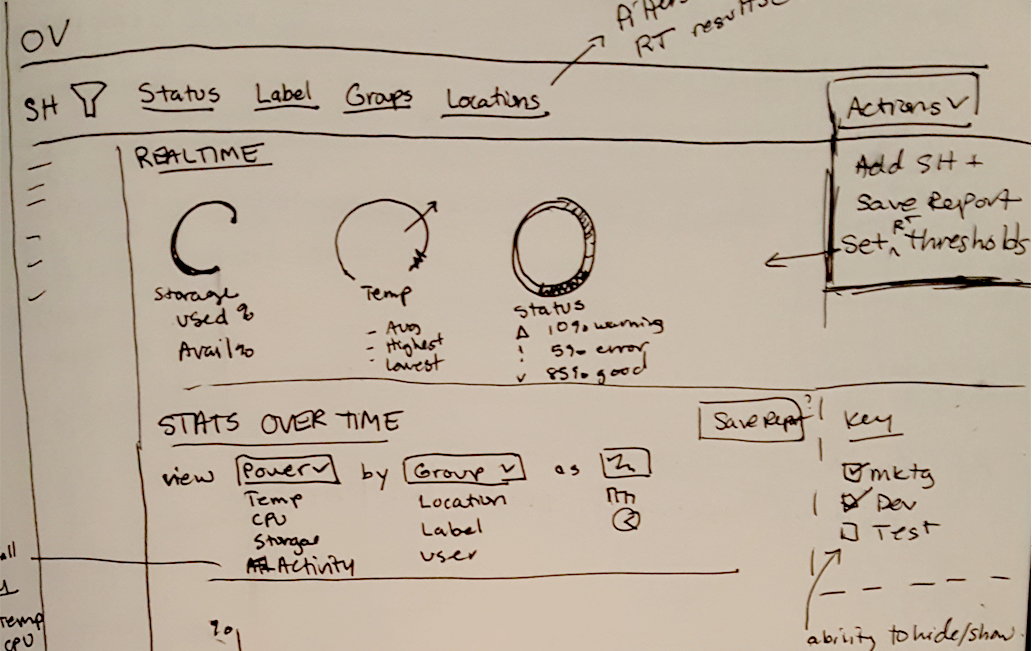 OV
RT results
SH Status Label Groups Locations
Actions
Add SH +
Save Report
Set RT thresholds
REALTIME
Storage
used %
Avail %
Temp
- Avg
- Highest
- Lowest
Status
10% warning
! 5% error
85% good
STATS OVER TIME
Save Report ?
view Power by Group as
Temp
CPU
Storage
Activity
Location
Label
User
Key
mktg
Dev
Test
ability to hide/show
%
Temp
CPU